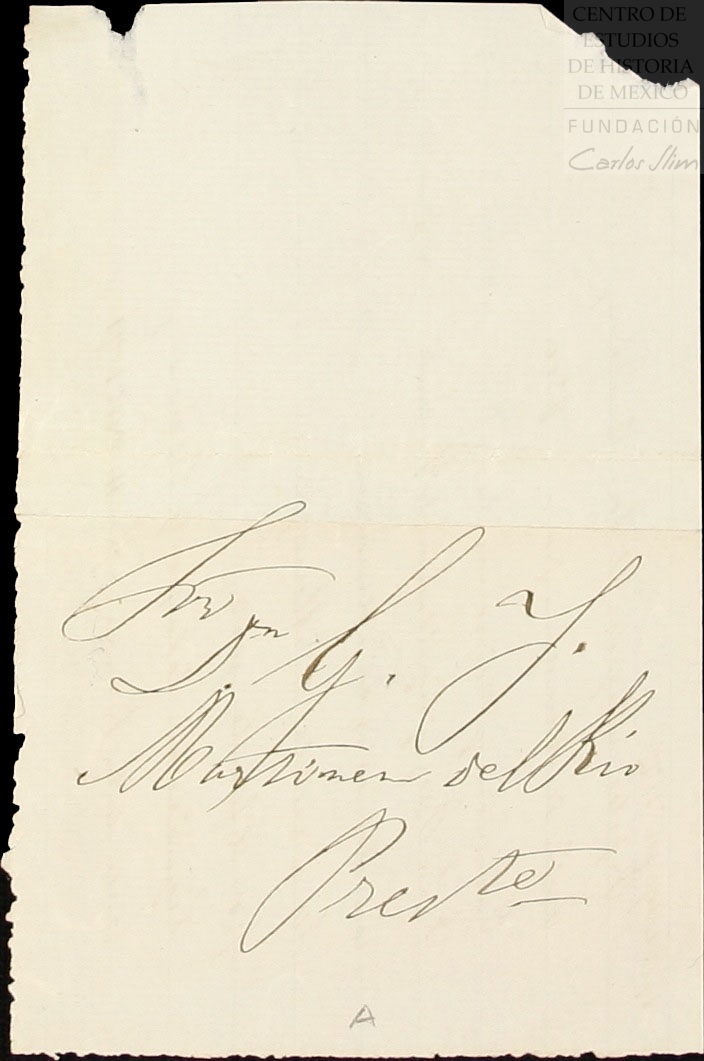 CENTRO DE
ESTUDIOS
DE HISTORIA
DE MEXICO
FUNDACIÓN
Carlos Slim
Sor
Dn G. J.
Martinez del Rio
Preste
A